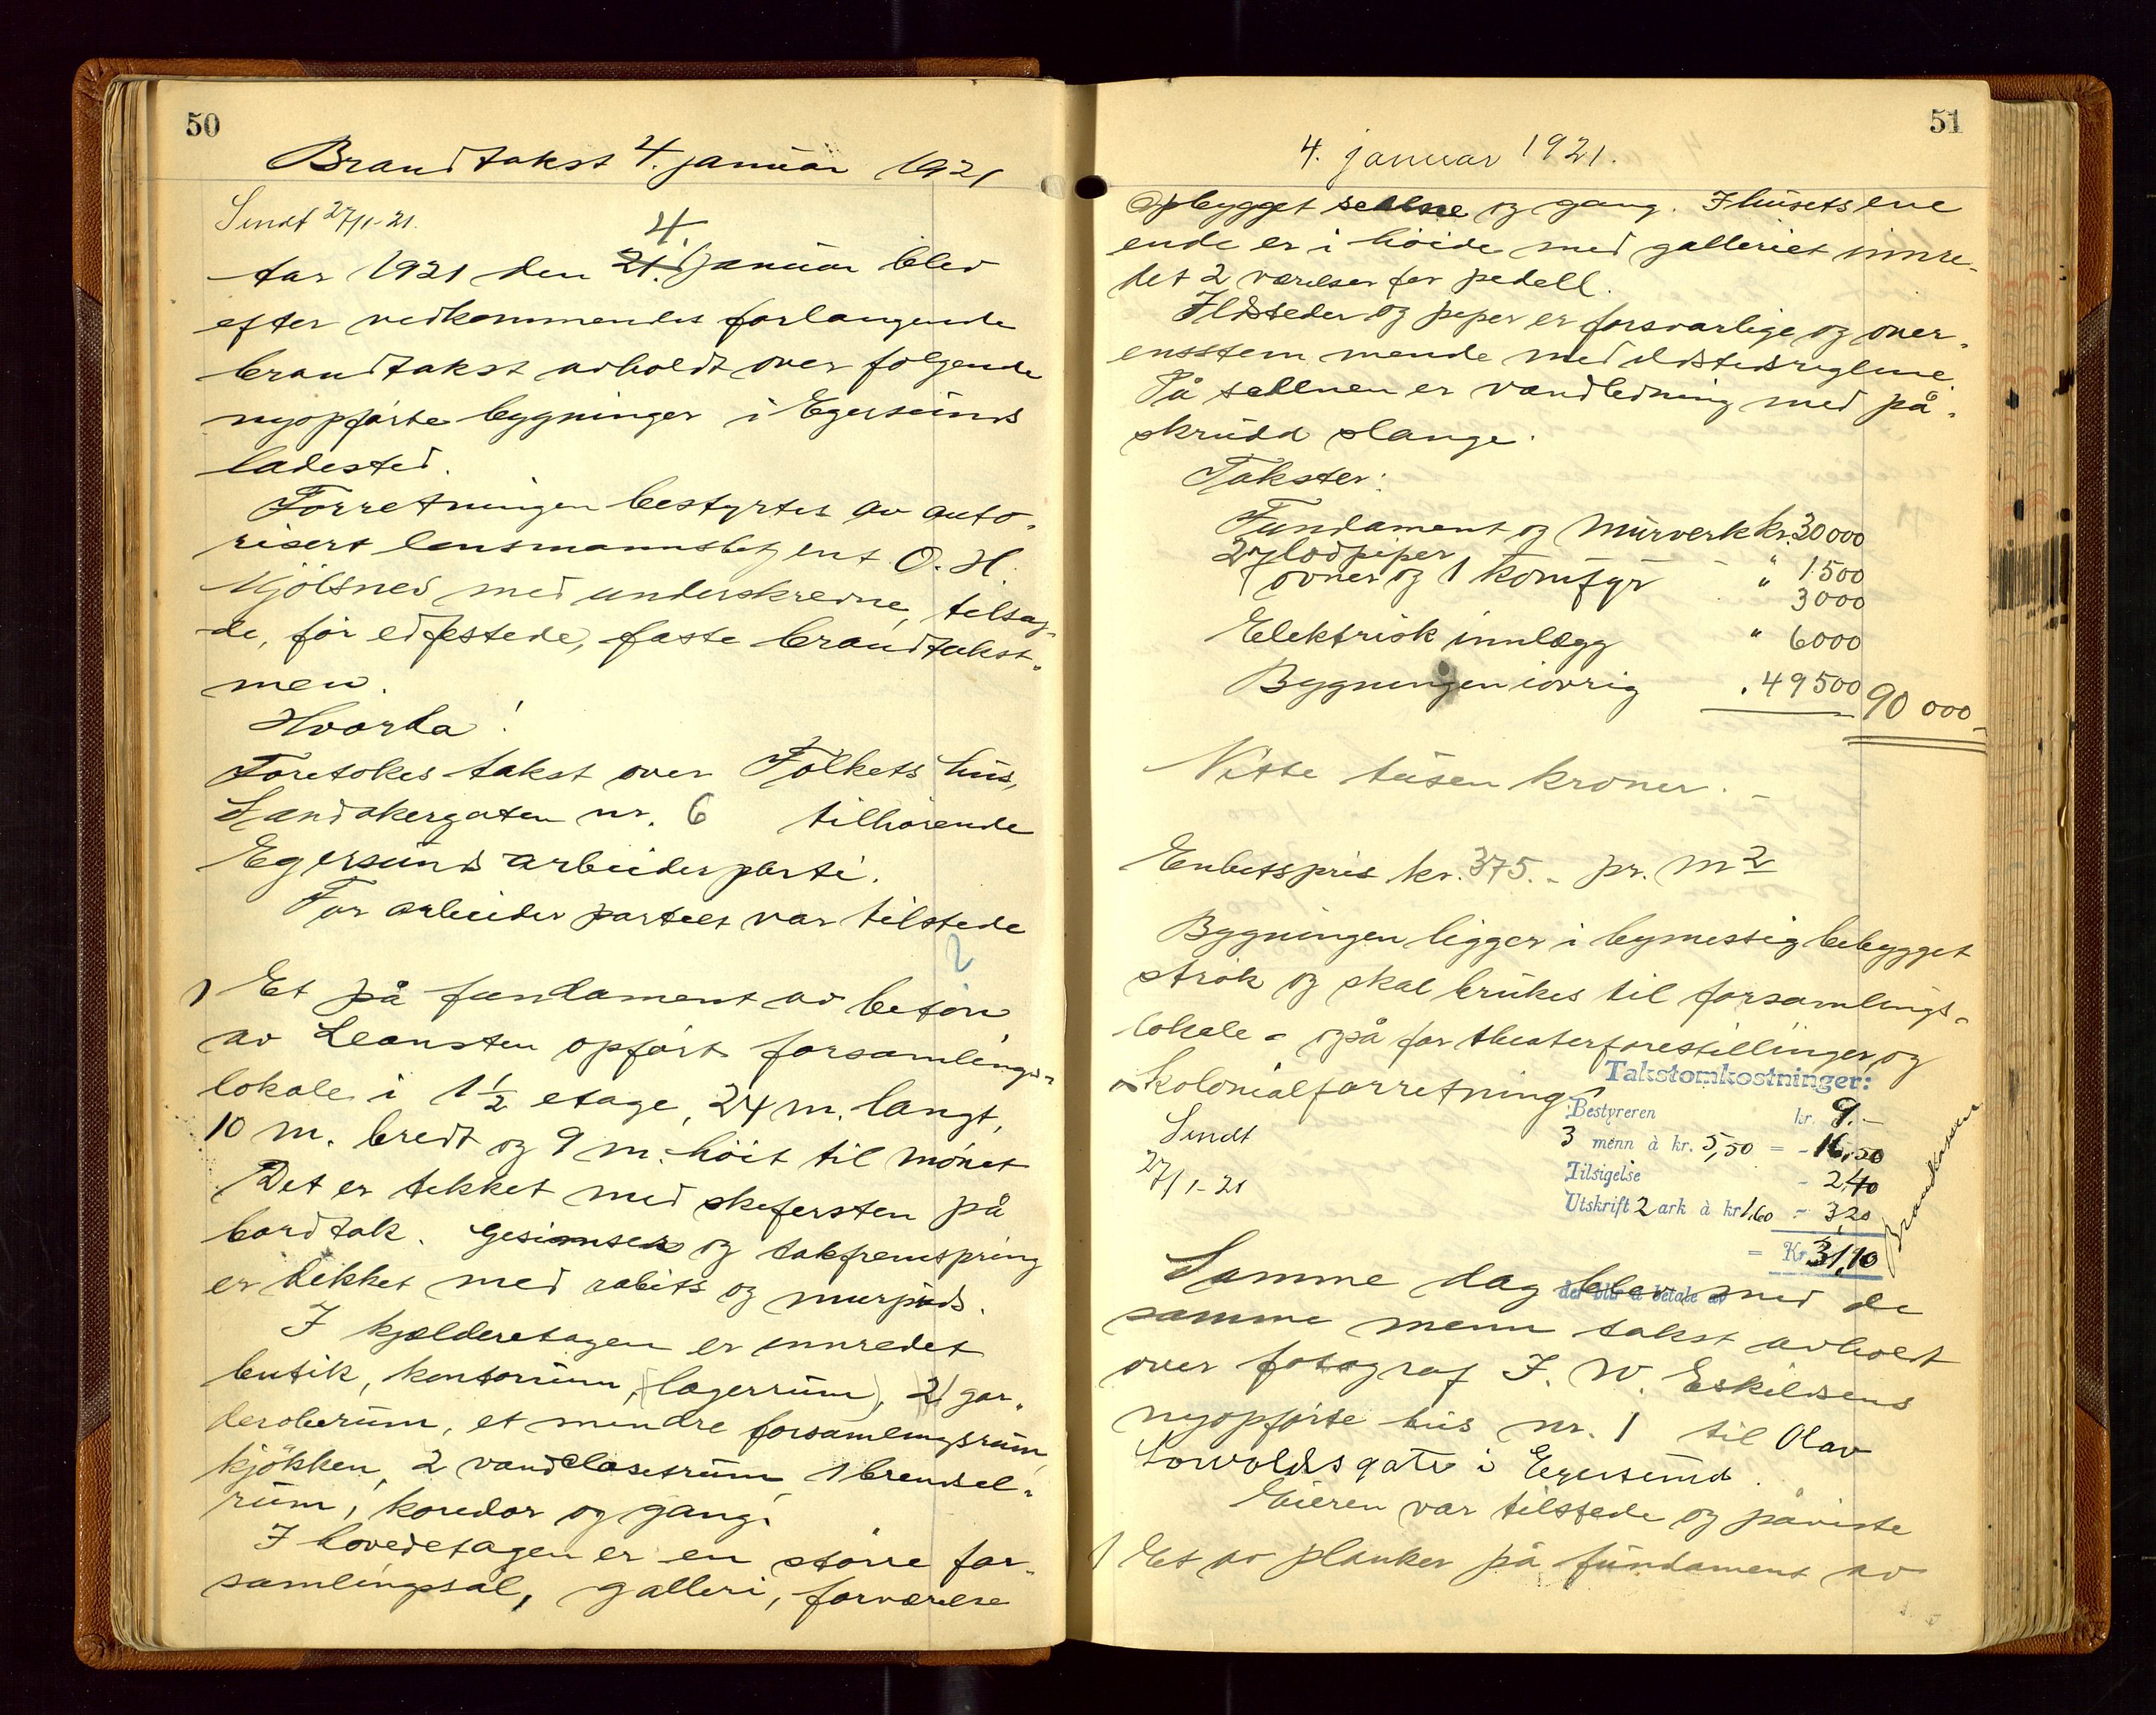 50
Brandtakst 4. januar 1921
Sendt 27/1-21.
4.
Aar 1921 den 21. januar blev
efter vedkommendes forlangende
brandtakst avholdt over følgende
nyopførte bygninger i Egersunds
ladested.
Forretningen bestyrtes av auto-
risert lensmannsbetjent O. H.
Mjølsnes med underskrevne, tilsag-
de, før edfestede, faste brandtakst-
men.
Hvorda!
Foretokes takst over Folkets hus,
Landakergaten nr. 6 tilhørende
Egersunds arbeiderparti.
For arbeiderpartiet var tilstede
2
1 Et på fundament av beton
av Leansten opført forsamlings-
lokale i 1½ etage, 24 m. langt,
10 m. bredt og 9 m. höit til mönet
Det er tekket med skifersten på
bordtak. Gesimser og takfremspring
er dekket med rabits og murpuds.
I kjælderetagen er innredet
butik, kontorrum, (lagerrum), 2 gar-
deroberum, et mindre forsamlingsrum,
kjøkken, 2 vandclosetrum, 1 brendsel-
rum, koredor og gang.
I hovedetagen er en større for-
samlingssal, galleri, forværelse
51
4. januar 1921.
opbygget scene og gang. I husets ene
ende er i höide med galleriet innre-
det 2 værelser for pedell.
Ildsteder og piper er forsvarlige og over-
ensstemmende med ildstedsreglene.
På scenen er vandledning med på-
skrudd slange.
Takster:
Fundament og murverk kr. 30000
2 lodpiper - " 1500
ovner og 1 komfyr " 3000
Elektrisk innlegg " 6000
Bygningen iøvrig " 49500 90 000
Nitti tusen kroner. -
Enhetspris kr. 375.- pr. m2
Bygningen ligger i bymessig bebygget
strøk og skal brukes til forsamlings-
lokale - også for theaterforestillinger og
kolonialforretning.
Takstomkostninger:
Bestyreren kr. 9.-
Sendt
3 menn à kr. 5,50 = - 16,50
27/1-21
Tilsigelse - 2,40
Utskrift 2 ark à kr 1.60 - 3,20
= Kr. 31,10
Brandkassen
Samme dag blev med de
det blir å betale av
samme menn takst avholdt
over fotograf J. W. Eskildsens
nyopførte hus nr. 1 til Olav
Lorvoldsgate i Egersund.
Eieren var tilstede og påviste
1 Et av planker på fundament av